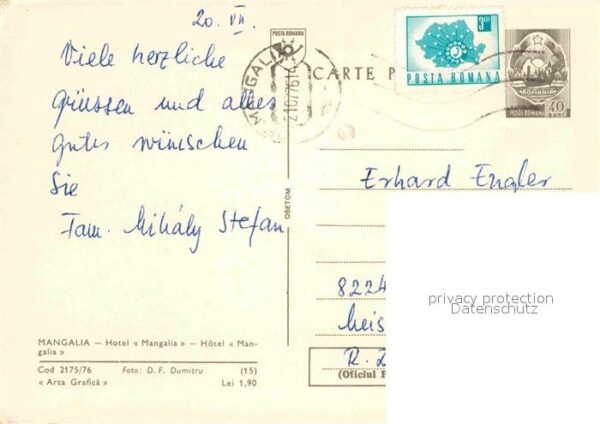 20. VII.
Viele herzliche
Grüssen und alles
gutes wünschen
Sie
Fam. Mihály Stefan
MANGALIA — Hotel « Mangalia » — Hôtel « Man-
galia »
Cod 2175/76 Foto: D. F. Dumitru (15)
« Arta Grafică » Lei 1,90
OSETOM
POSTA ROMANA
MANGALIA
21.07.76
CARTE P
3 LEI
POSTA ROMANA
ROMANIA
POSTA ROMANA 40 BANI
Erhard Engler
8224
Meis
R.
(Oficiul P
privacy protection
Datenschutz